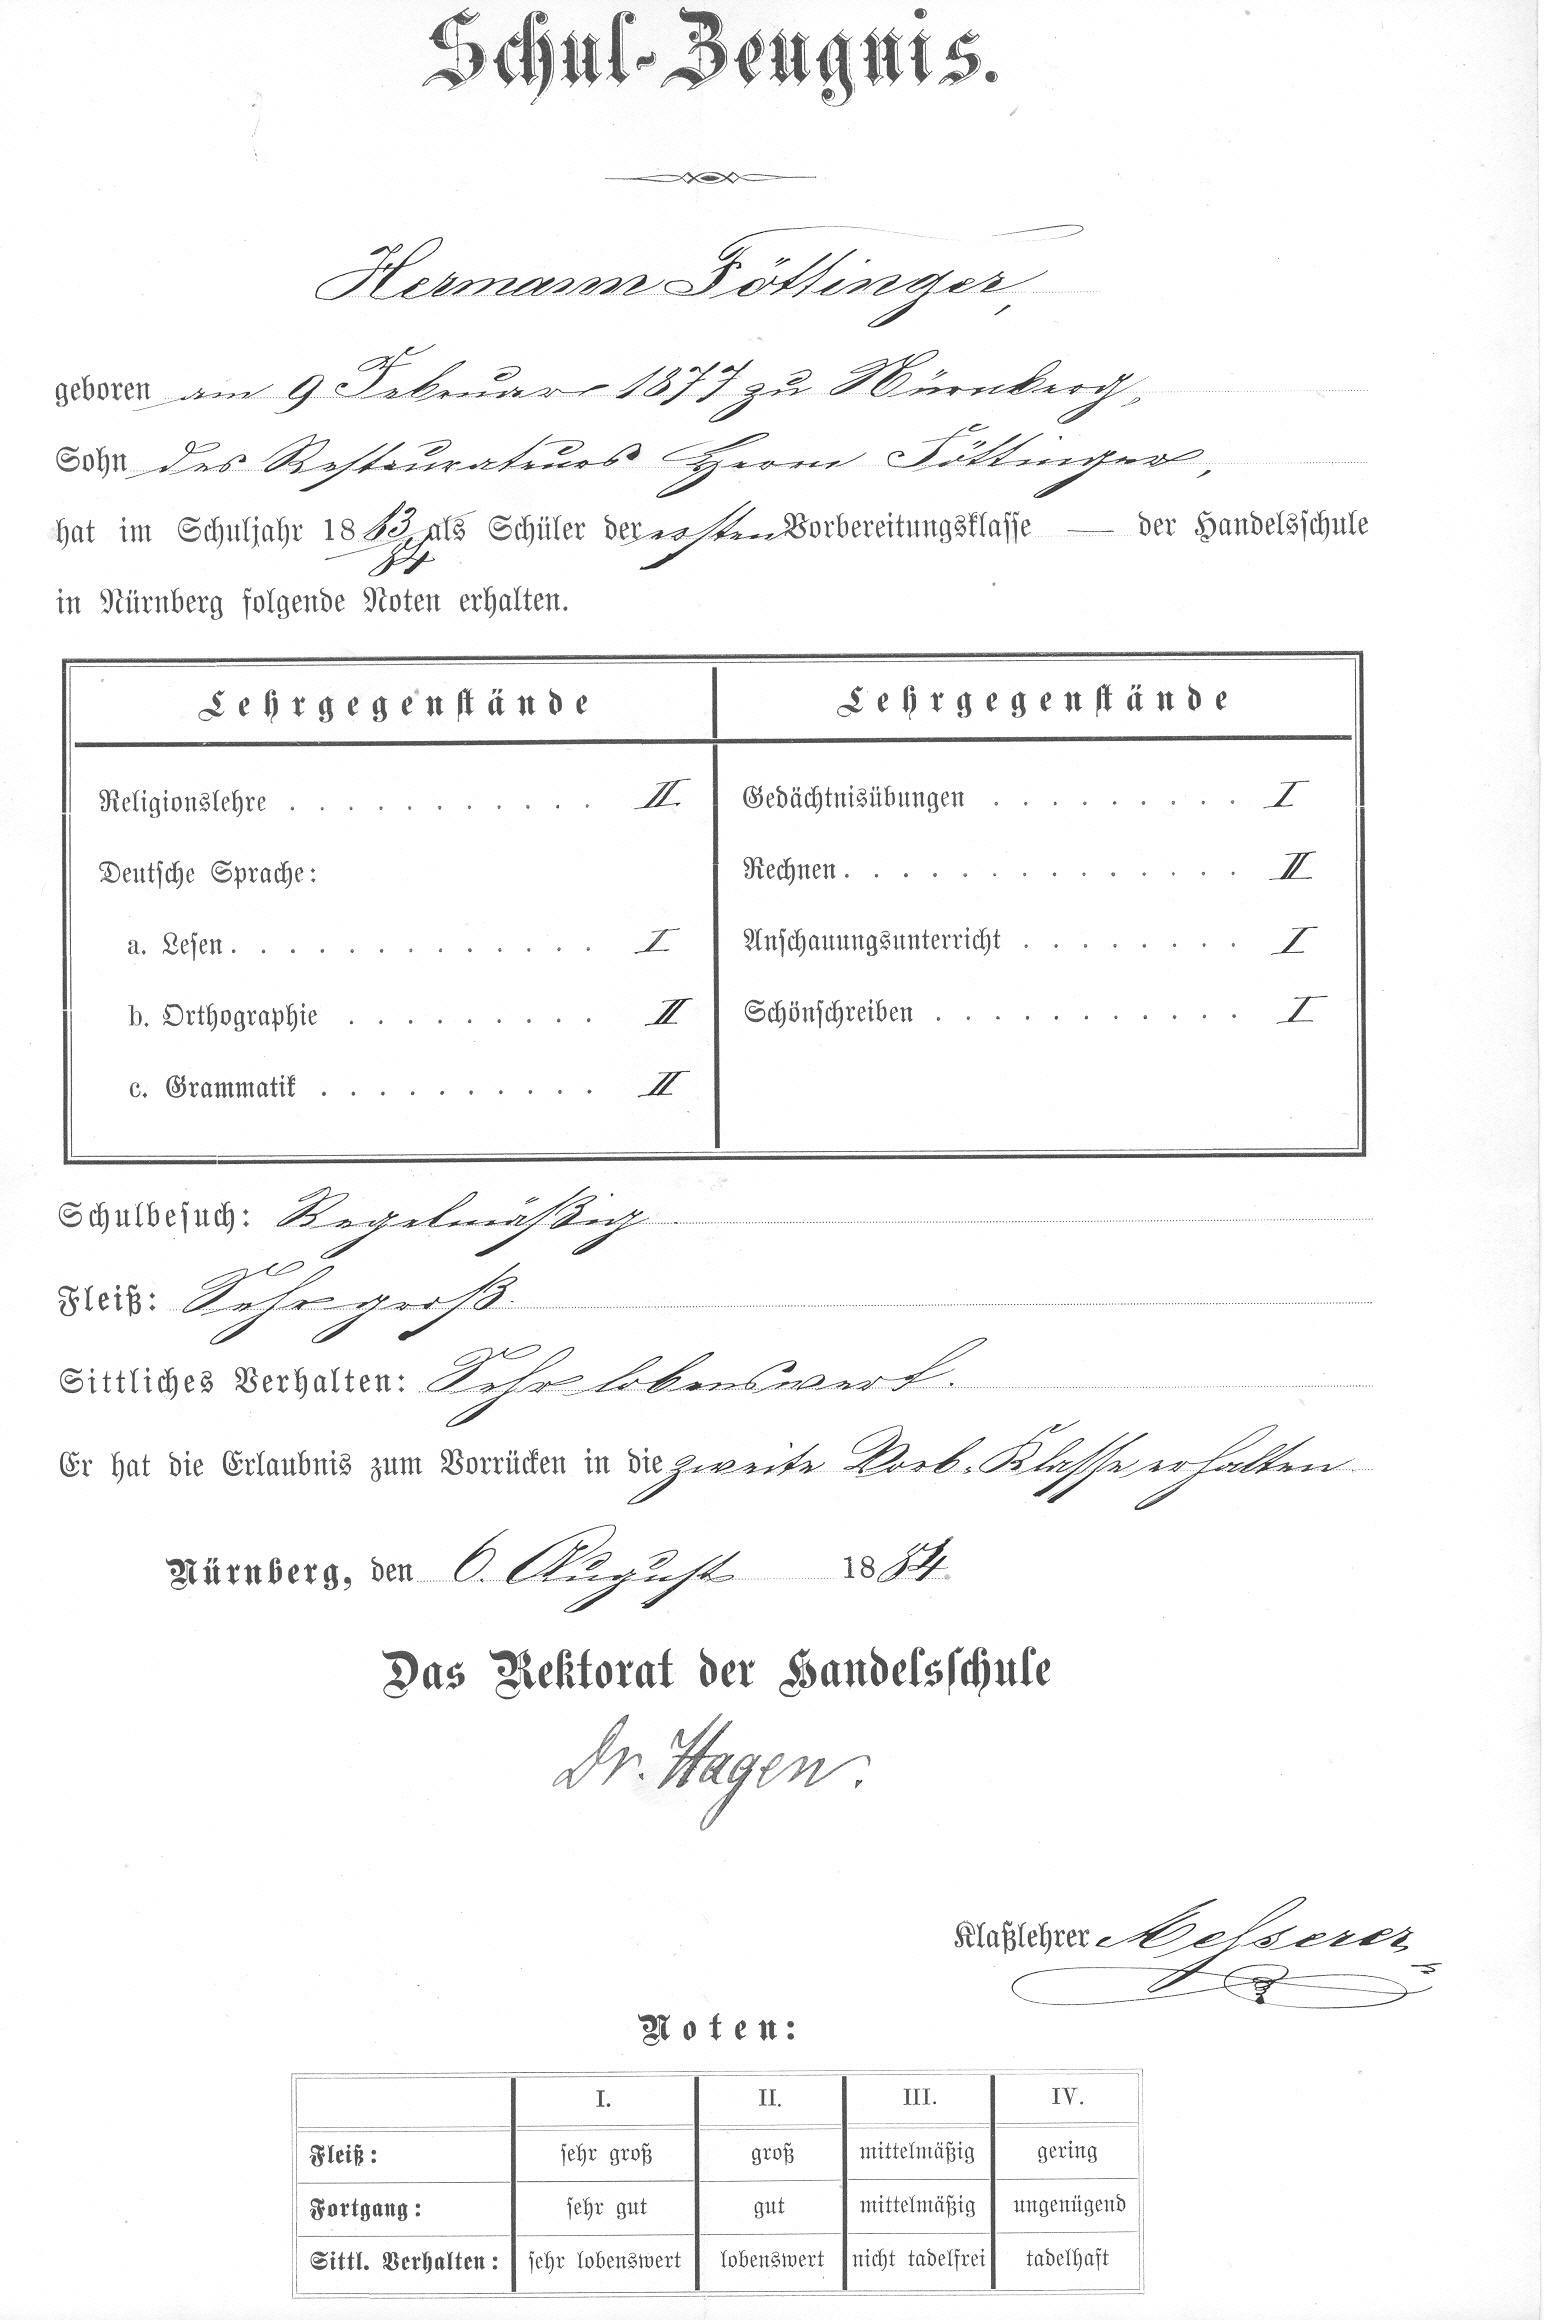 Schul-Zeugnis.
Hermann Föttinger,
geboren am 9 Februar 1877 zu Nürnberg,
Sohn des Restaurateurs Herrn Föttinger,
hat im Schuljahr 1883/84 als Schüler der ersten Vorbereitungsklasse — der Handelsschule
in Nürnberg folgende Noten erhalten.
Lehrgegenstände
Religionslehre . . . . . . . . . . . II.
Deutsche Sprache:
a. Lesen . . . . . . . . . . . . . I
b. Orthographie . . . . . . . . . II
c. Grammatik . . . . . . . . . . II
Lehrgegenstände
Gedächtnisübungen . . . . . . . . . I
Rechnen . . . . . . . . . . . . . . II
Anschauungsunterricht . . . . . . . . I
Schönschreiben . . . . . . . . . . . I
Schulbesuch: Regelmäßig.
Fleiß: Sehr groß.
Sittliches Verhalten: Sehr lobenswert.
Er hat die Erlaubnis zum Vorrücken in die zweite Vorb. Klasse erhalten
Nürnberg, den 6. August 1884.
Das Rektorat der Handelsschule
Dr. Hagen.
Klaßlehrer Messerer
Noten:
I. II. III. IV.
Fleiß: sehr groß groß mittelmäßig gering
Fortgang: sehr gut gut mittelmäßig ungenügend
Sittl. Verhalten: sehr lobenswert lobenswert nicht tadelfrei tadelhaft